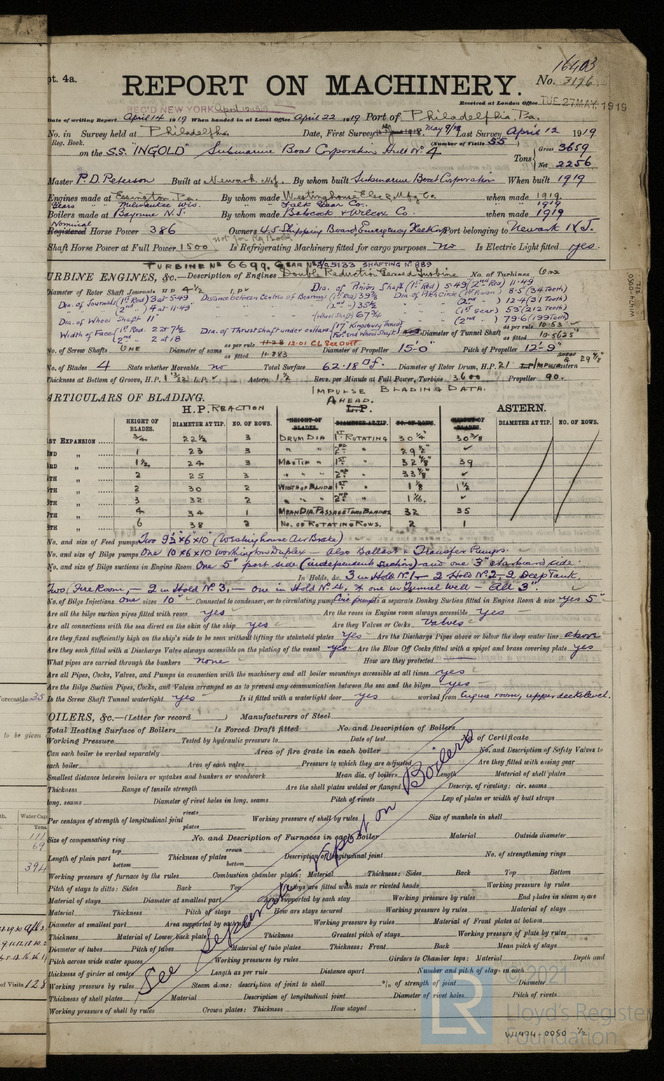 16403
pt. 4a.
REPORT ON MACHINERY.
No. 3196
REC'D NEW YORK April
Received at London Office TUE. 27 MAY. 1919
Date of writing Report April 14 1919 When handed in at Local Office April 22 1919 Port of Philadelphia, Pa.
No. in Survey held at Philadelphia Date, First Survey May 9/18 Last Survey April 12 1919
Reg. Book. (Number of Visits 55)
on the S.S. "INGOLD" Submarine Boat Corporation Hull No 4 Tons Gross 3659
Net 2256
Master P.D. Peterson Built at Newark N.J. By whom built Submarine Boat Corporation When built 1919
Engines made at Essington Pa. By whom made Westinghouse Elec. & Mfg. Co. when made 1919.
Gears " " Milwaukee Wis. " " Falk Gear Co. 1919
Boilers made at Bayonne N.J. By whom made Babcock & Wilcox Co. when made 1919
Nominal
Registered Horse Power 386 Owners U.S. Shipping Board Emergency Fleet Corp Port belonging to Newark N.J.
not for Reg Book
Shaft Horse Power at Full Power 1500 Is Refrigerating Machinery fitted for cargo purposes no Is Electric Light fitted yes.
TURBINE No 6699. GEAR No 25133 SHAFTING No 889
TURBINE ENGINES, &c.—Description of Engines Double Reduction Geared Turbine No. of Turbines One
Diameter of Rotor Shaft Journals, H.P. 4" L.P.
Dia. of Pinion Shaft (1st Red) 5.49 (2nd Red) 11.49
Dia. of Journals (1st Red) 3 at 5.49 Distance between Centres of Bearing (1st Red) 39 3/8 Dia. of Pitch Circle (1st Pinion) 8.5 (34 Teeth)
(2nd " ) 4 at 11.49 (2nd " ) 35 1/2 (2nd " ) 12.4 (31 Teeth)
Dia. of Wheel Shaft 11" (Wheel Shaft) 67 3/4 (1st Gear) 53 (212 Teeth)
Width of Face (1st Red. 2 at 7 1/2 Dia. of Thrust shaft under collars (17" Kingsbury thrust (2nd " ) 79.6 (199 Teeth)
(2nd " 2 at 18 Diameter of Tunnel Shaft as per rule 10.53
as fitted 10.5625"
No. of Screw Shafts ONE Diameter of same as per rule 11.28 12.01 CL See Over
as fitted 11.883 Diameter of Propeller 15'-0" Pitch of Propeller 12'-9"
No. of Blades 4 State whether Moveable no Total Surface 62.18 sq f. Diameter of Rotor Drum, H.P. 21 L.P. Impulse Astern 29 7/8"
Thickness at Bottom of Groove, H.P. 1 9/32 L.P. Astern 1 1/2 Revs. per Minute at Full Power, Turbine 3600 Propeller 90.
IMPULSE BLADING DATA.
PARTICULARS OF BLADING.
AHEAD.
H.P. REACTION L.P. ASTERN.
HEIGHT OF BLADES. DIAMETER AT TIP. NO. OF ROWS. HEIGHT OF BLADES. DIAMETER AT TIP. NO. OF ROWS. HEIGHT OF BLADES. DIAMETER AT TIP. NO. OF ROWS.
1ST EXPANSION 3/4 22 1/2 3 DRUM DIA 1ST ROTATING 30 1/4" 30 3/8
2ND " 1 23 3 " " 2ND " 29 1/2"
3RD " 1 1/2 24 3 MAX TIP " 1ST " 32 7/8 39
4TH " 2 25 3 " " " 2ND " 33 1/8
5TH " 2 30 2 WIDTH OF BLADE 1ST " 1 1/8 1 1/2
6TH " 3 32 2 " " " 2ND " 1 1/8
7TH " 4 34 1 MEAN DIA. PASSAGE THRO BLADES 32 35
8TH " 6 38 2 NO. OF ROTATING ROWS. 2 1
No. and size of Feed pumps Two 9½ x 6 x 10 (Westinghouse Air Brake)
No. and size of Bilge pumps One 10 x 6 x 10 Worthington Duplex — Also Ballast & Transfer Pumps.
No. and size of Bilge suctions in Engine Room One 5" port side (independent suction) and one 3" starboard side.
In Holds, &c. 3 in Hold No 1 — 2 Hold No 2, 2 Deep Tank,
Two, Fire Room, — 2 in Hold No 3, — one in Hold No 4, & one in Tunnel Well — All 3".
No. of Bilge Injections One sizes 10" Connected to condenser, or to circulating pump Circ pump Is a separate Donkey Suction fitted in Engine Room & size yes 5"
Are all the bilge suction pipes fitted with roses yes Are the roses in Engine room always accessible yes
Are all connections with the sea direct on the skin of the ship yes Are they Valves or Cocks valves
Are they fixed sufficiently high on the ship's side to be seen without lifting the stokehold plates yes Are the Discharge Pipes above or below the deep water line above
Are they each fitted with a Discharge Valve always accessible on the plating of the vessel yes Are the Blow Off Cocks fitted with a spigot and brass covering plate yes
What pipes are carried through the bunkers none How are they protected
Are all Pipes, Cocks, Valves, and Pumps in connection with the machinery and all boiler mountings accessible at all times yes
Are the Bilge Suction Pipes, Cocks, and Valves arranged so as to prevent any communication between the sea and the bilges yes
Is the Screw Shaft Tunnel watertight yes Is it fitted with a watertight door yes worked from Engine room, upper deck level.
BOILERS, &c.—(Letter for record ) Manufacturers of Steel
Total Heating Surface of Boilers Is Forced Draft fitted No. and Description of Boilers
Working Pressure Tested by hydraulic pressure to Date of test No. of Certificate
Can each boiler be worked separately Area of fire grate in each boiler No. and Description of Safety Valves to
each boiler Area of each valve Pressure to which they are adjusted Are they fitted with easing gear
Smallest distance between boilers or uptakes and bunkers or woodwork Mean dia. of boilers Length Material of shell plates
Thickness Range of tensile strength Are the shell plates welded or flanged Descrip. of riveting: cir. seams
long. seams Diameter of rivet holes in long. seams Pitch of rivets Lap of plates or width of butt straps
Per centages of strength of longitudinal joint rivets
plates Working pressure of shell by rules Size of manhole in shell
Size of compensating ring No. and Description of Furnaces in each boiler Material Outside diameter
Length of plain part top
bottom Thickness of plates crown
bottom Description of longitudinal joint No. of strengthening rings
Working pressure of furnace by the rules Combustion chamber plates: Material Thickness: Sides Back Top Bottom
Pitch of stays to ditto: Sides Back Top If stays are fitted with nuts or riveted heads Working pressure by rules
Material of stays Diameter at smallest part Area supported by each stay Working pressure by rules End plates in steam space
Material Thickness Pitch of stays How are stays secured Working pressure by rules Material of stays
Diameter at smallest part Area supported by each stay Working pressure by rules Material of Front plates at bottom
Thickness Material of Lower back plate Thickness Greatest pitch of stays Working pressure of plate by rules
Diameter of tubes Pitch of tubes Material of tube plates Thickness: Front Back Mean pitch of stays
Pitch across wide water spaces Working pressures by rules Girders to Chamber tops: Material Depth and
thickness of girder at centre Length as per rule Distance apart Number and pitch of stays in each
Working pressure by rules Steam dome: description of joint to shell % of strength of joint Diameter
Thickness of shell plates Material Description of longitudinal joint Diameter of rivet holes Pitch of rivets
Working pressure of shell by rules Crown plates: Thickness How stayed
See Separate Report on Boilers
© 2021
LR
Lloyd's Register
Foundation
W1474-0050 ½